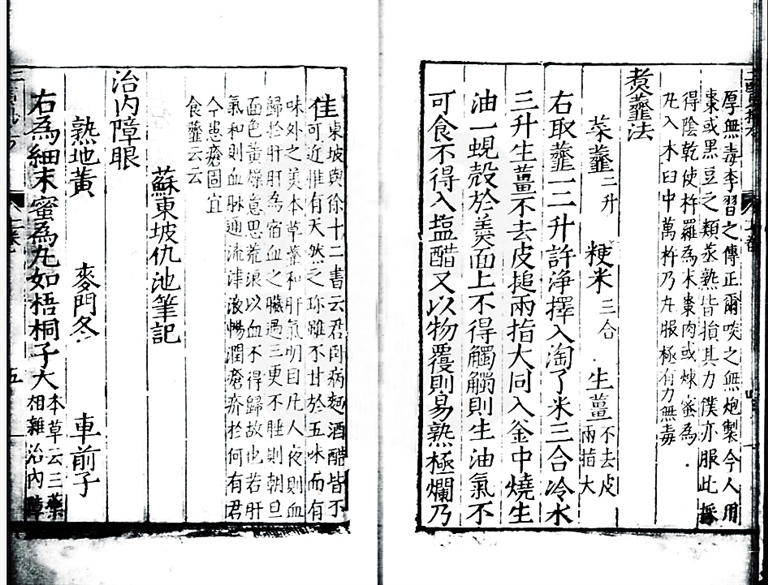 厚無毒李習之傳正爾啖之無炮製今人用
棗或黑豆之類蒸熟皆損其力僕亦服此採
得陰乾使杵羅為末棗肉或煉蜜為
丸入木臼中萬杵乃丸服極有力無毒
煑虀法
菜虀二升 粳米三合 生薑不去皮兩指大
右取虀一二升許淨擇入淘了米三合冷水
三升生薑不去皮搥兩指大同入釜中燒生
油一蜆殼於羮面上不得觸觸則生油氣不
可食不得入塩醋又以物覆則易熟極爛乃
佳東坡與徐十二書云君因病麵酒醋皆不
可近惟有天然之珍雖不甘於五味而有
味外之美本草虀和肝氣明目凡人夜則血
歸於肝肝為宿血之臟過三更不睡則朝旦
面色黃燥意思荒浪以血不得歸故也若肝
氣和則血脉通流津液暢潤瘡疥於何有君
今患瘡固宜
食虀云云
蘇東坡仇池筆記
治內障眼
熟地黃 麥門冬 車前子
右為細末蜜為丸如梧桐子大本草云三藥相雜治內障
五